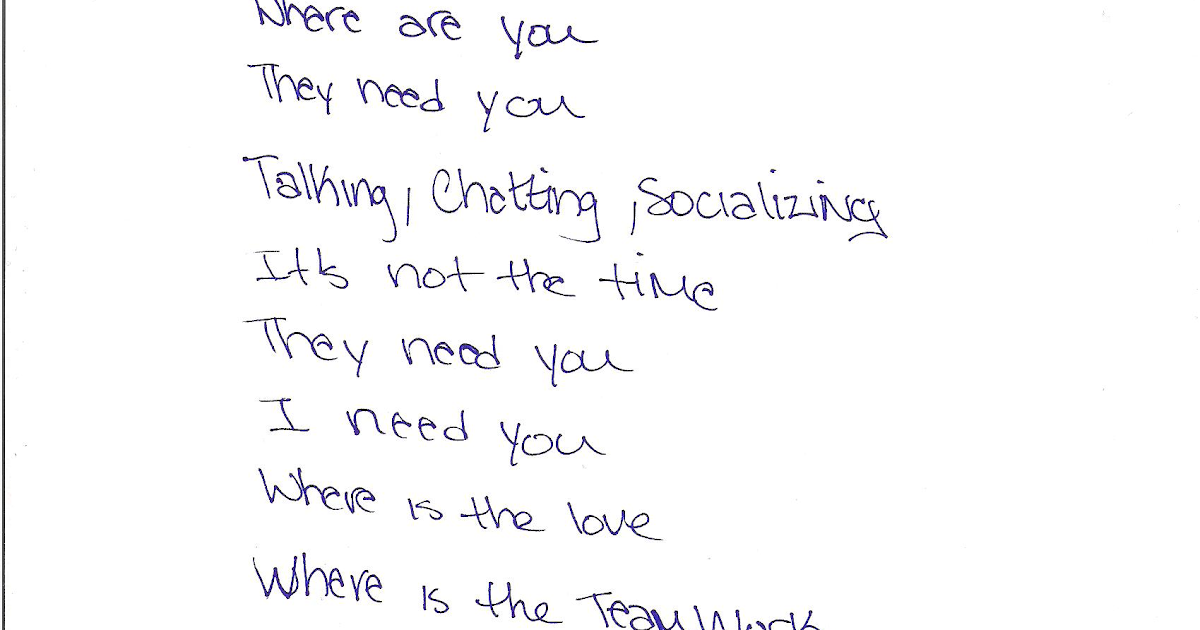 Where are you
They need you
Talking, Chatting, Socializing
It's not the time
They need you
I need you
Where is the love
Where is the TeamWork